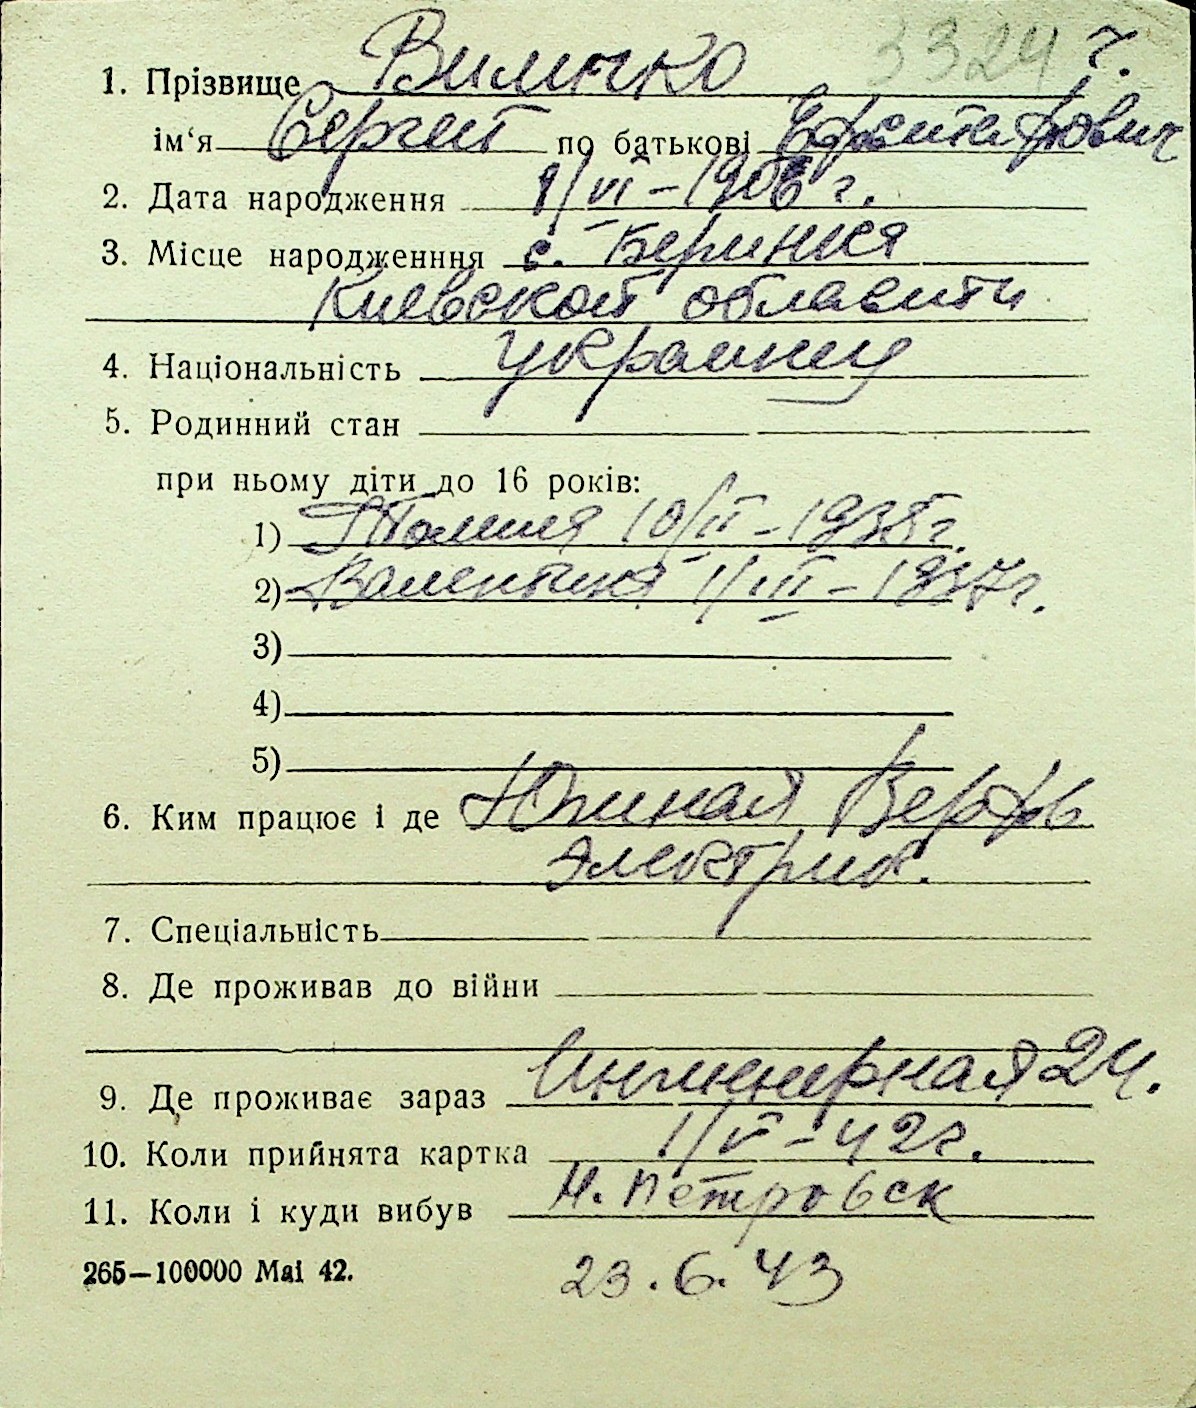 3324 ч.
1. Прізвище Вилинко
ім‘я Сергей по батькові
2. Дата народження 1/VI – 1906 г.
3. Місце народженння с. Беринка
Киевской обласити
4. Національність украинец
5. Родинний стан
при ньому діти до 16 років:
1) 10/II – 1935 г.
2) Валентина 1/III – 1937 г.
3)
4)
5)
6. Ким працює і де Южная Верфь
электрик.
7. Спеціальність
8. Де проживав до війни
9. Де проживає зараз Инженерная 24.
10. Коли прийнята картка 1/V – 42 г.
11. Коли і куди вибув Н. Петровск
265—100000 Mai 42. 23.6.43